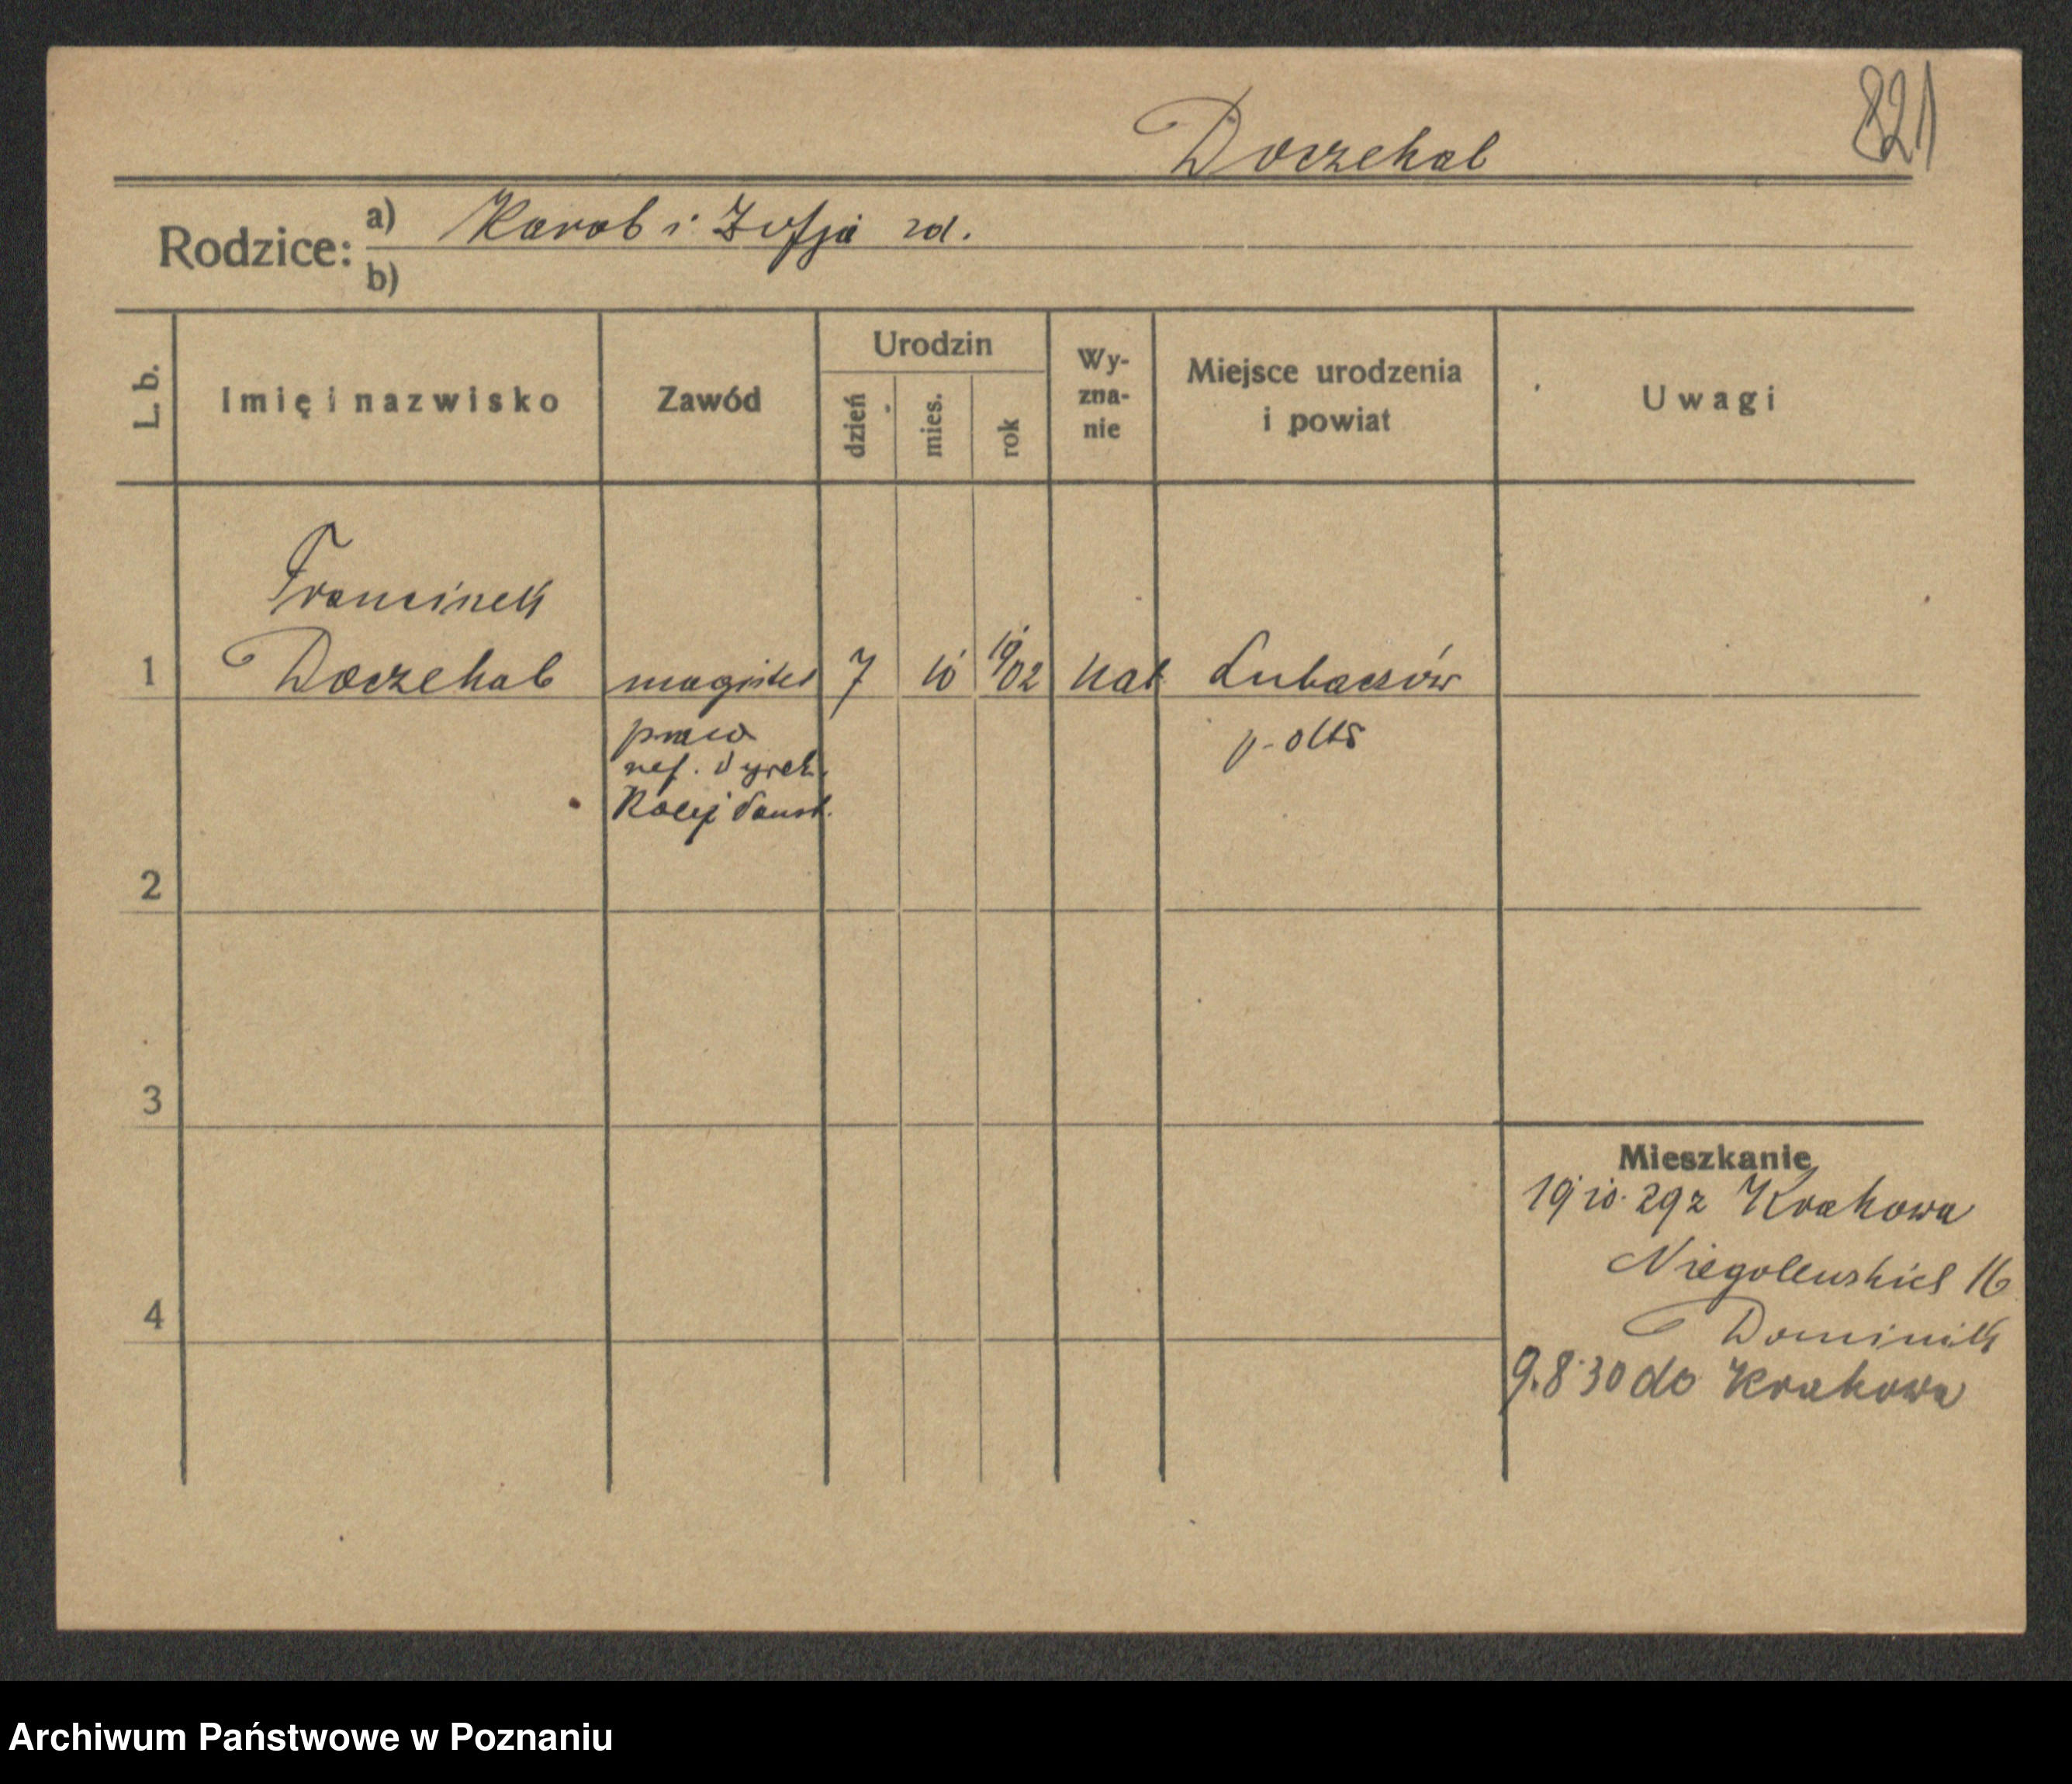 821
Doczekal
Rodzice:
a) Karol i Zofja zd.
b)
L. b.
Imię i nazwisko
Zawód
Urodzin
dzień
mies.
rok
Wy-
zna-
nie
Miejsce urodzenia
i powiat
Uwagi
Franciszek
1 Doczekal magister 7 10 1902 kat Lubaczów
praw
ref. Dyrek.
Kolej Państ.
2
3
4
Mieszkanie
19 10. 29 z Krakowa
Niegolewskich 16
Dominik
9.8 30 do Krakowa
Archiwum Państwowe w Poznaniu